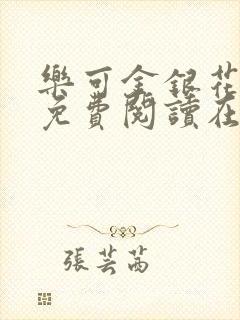 樂可金銀花
免費閱讀在
張芸茜